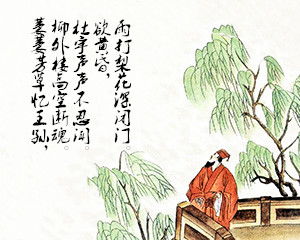 萋萋芳草忆王孙，
柳外楼高空断魂。
杜宇声声不忍闻。
欲黄昏，
雨打梨花深闭门。